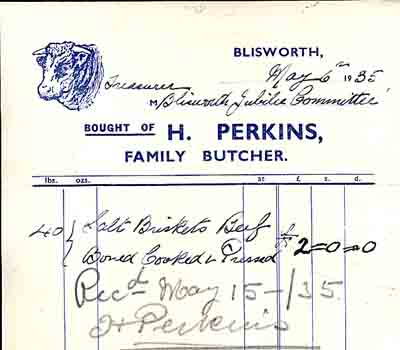 BLISWORTH,
May 6th 1935
Treasurer
M Blisworth Jubilee Committee
BOUGHT OF H. PERKINS,
FAMILY BUTCHER.
lbs. ozs. at £ s. d.
40 } Salt Briskets Beef
Boned Cooked & Pressed 1/- 2=0=0
Recd May 15-/35
H Perkins